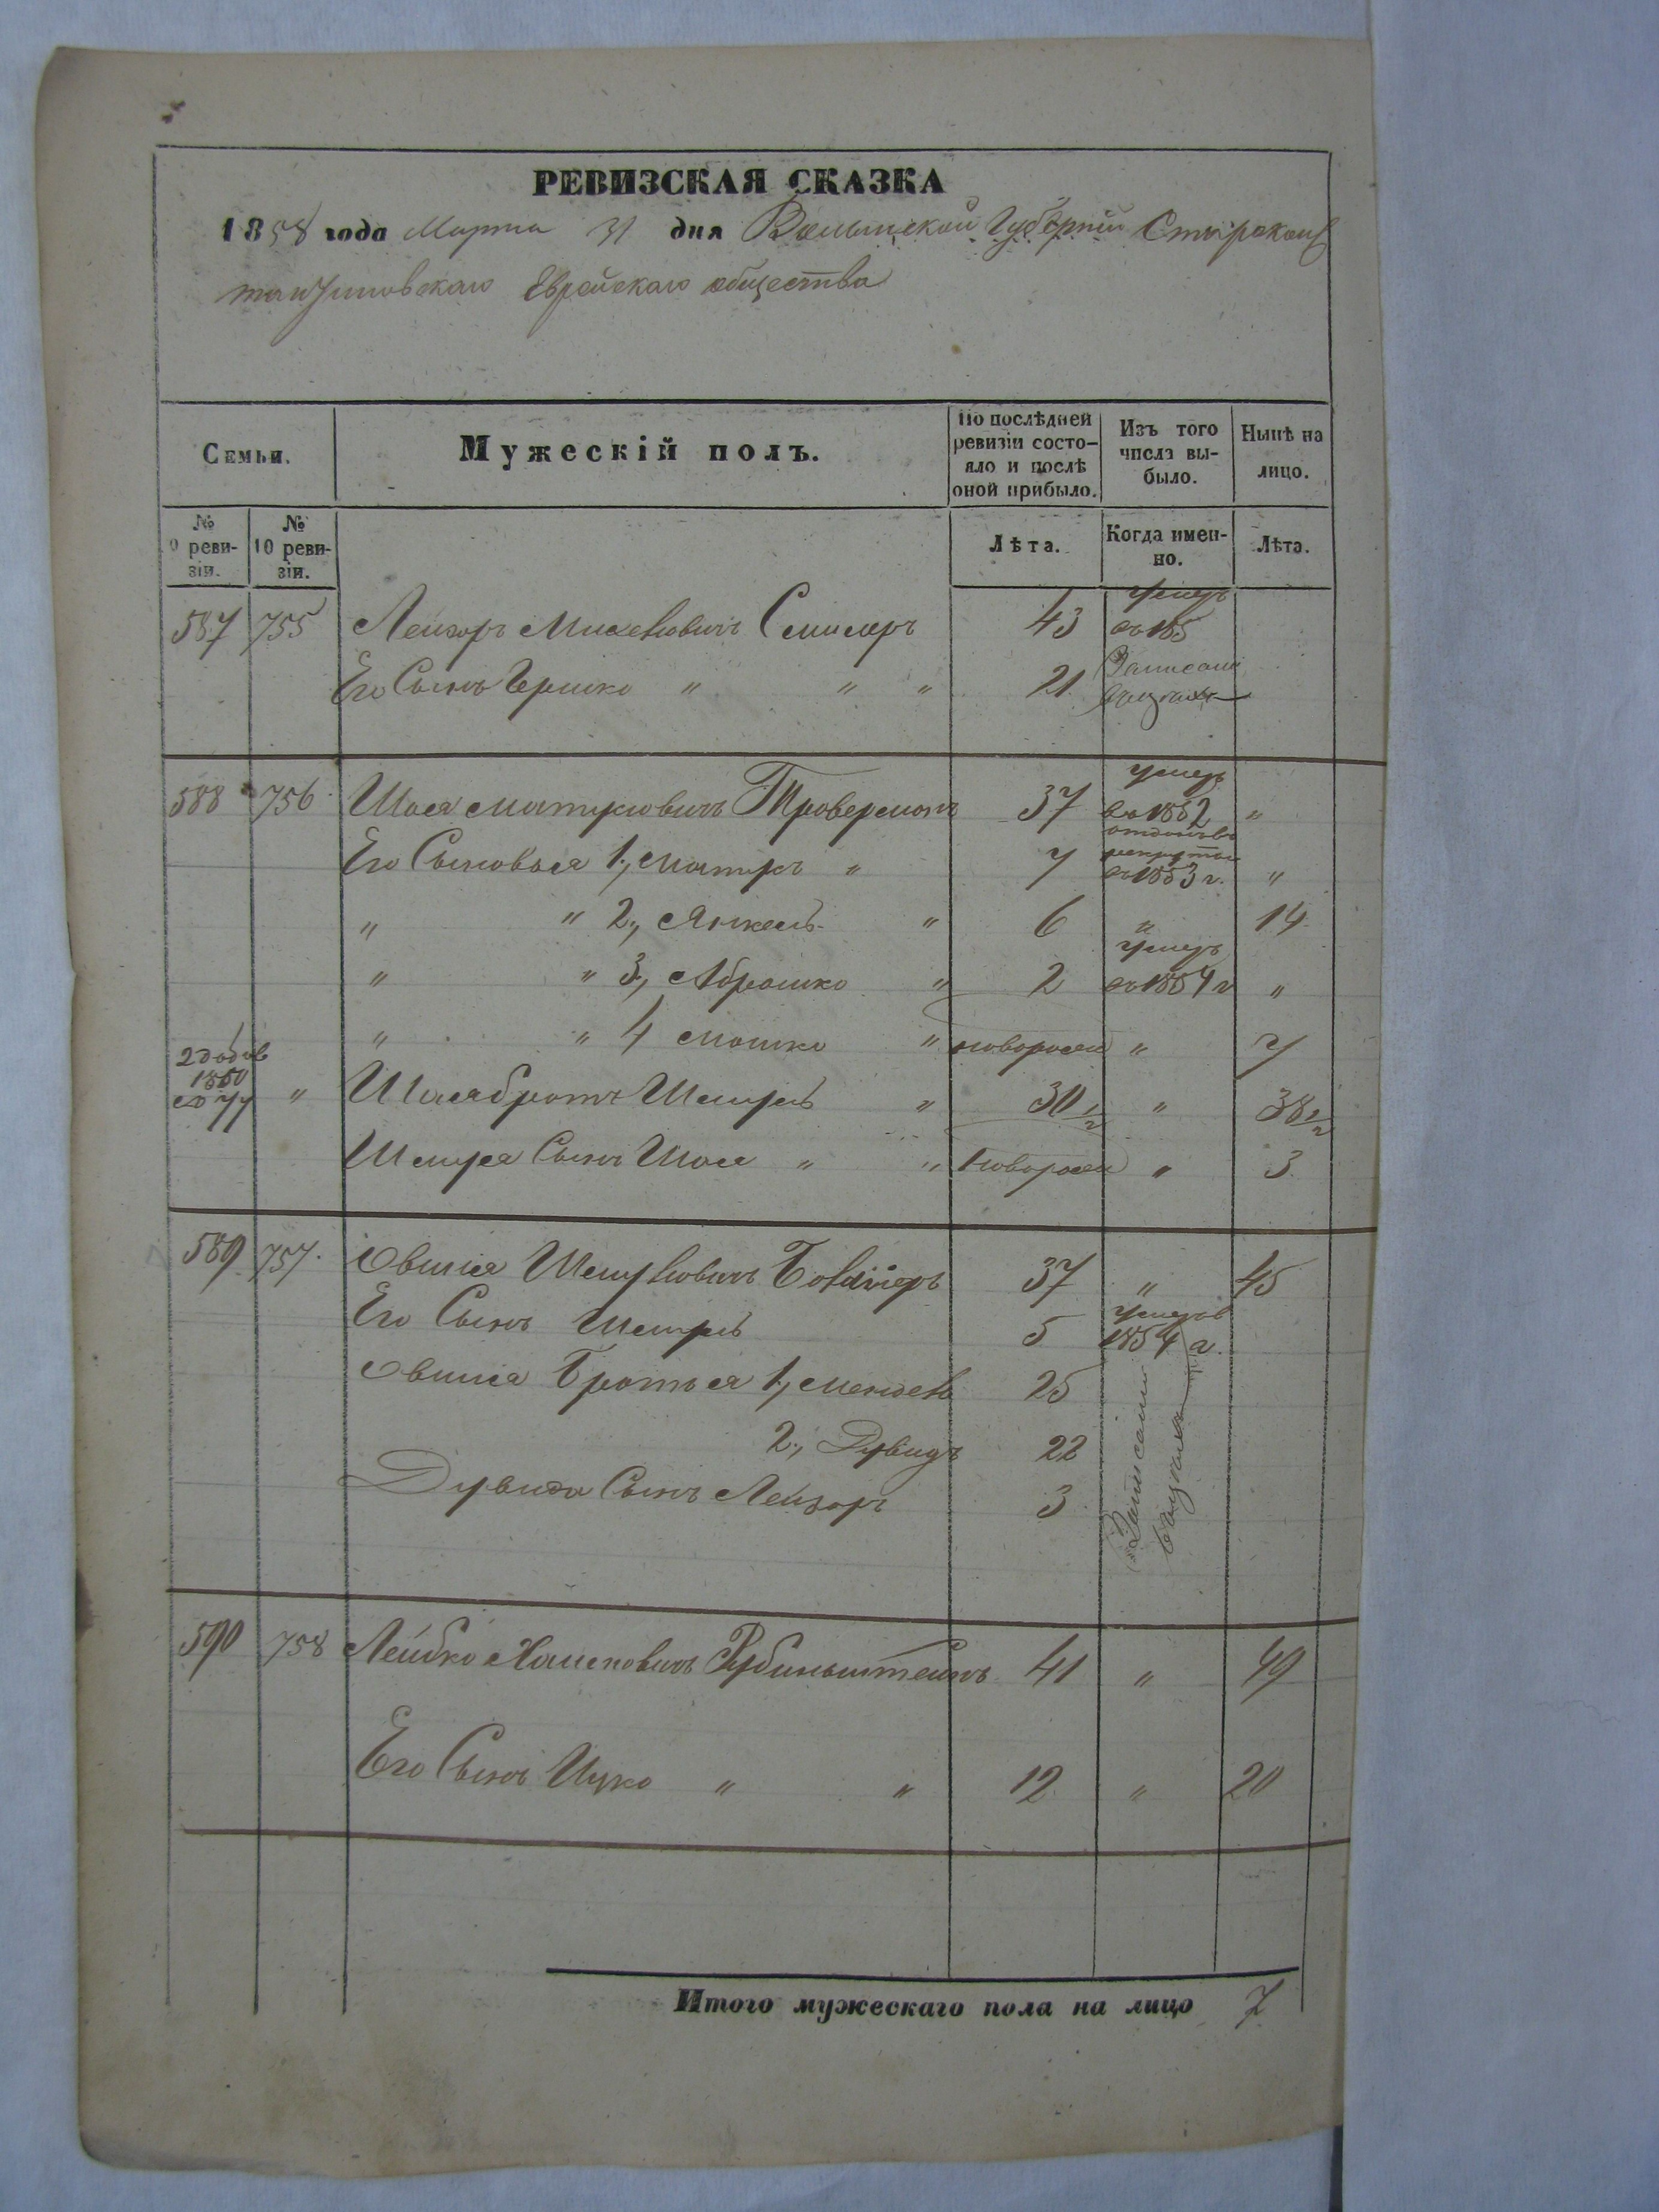 РЕВИЗСКАЯ СКАЗКА
1858 года Марта 31 дня Волынской Губерніи Старокон
тантиновскаго Еврейскаго общества
Семьи.
Мужескій полъ.
По послѣдней ревизіи состо-
яло и послѣ
оной прибыло.
Изъ того
числа вы-
было.
Нынѣ на
лицо.
№
9 реви-
зіи.
№
10 реви-
зіи.
Лѣта.
Когда имен-
но.
Лѣта.
587 755 Лейзоръ 43 умеръ въ 185
Его Сынъ Гершко " " " 21 Записанъ
588 756 Шоел Матусовичъ 37 умеръ въ 1852 "
Его Сыновья 1, Матусъ " 7 отданъ въ рекруты въ 1853 г. "
" " 2, Янкель " 6 " 14
" " 3, Абрашко " 2 умеръ въ 1854 г "
" " 4 Мошко " новорожен " 7
2 добав 1850 "
Шоел братъ Шмуль " 30 1/2 " 38 1/2
Шмуля Сынъ Шоел " " новорожен " 3
589 757. Овшіа Шмулевичъ 37 " 45
Его Сынъ Шмуль 5 умеръ в 1854 г.
Овшіа Братья 1, Мендель 25
2, Дувидъ 22
Дувида Сынъ Лейзоръ 3
Записаны
590 758 Лейбко Хаимовичъ Рубинштейнъ 41 " 49
Его Сынъ Ицко " " 12 " 20
Итого мужескаго пола на лицо 7